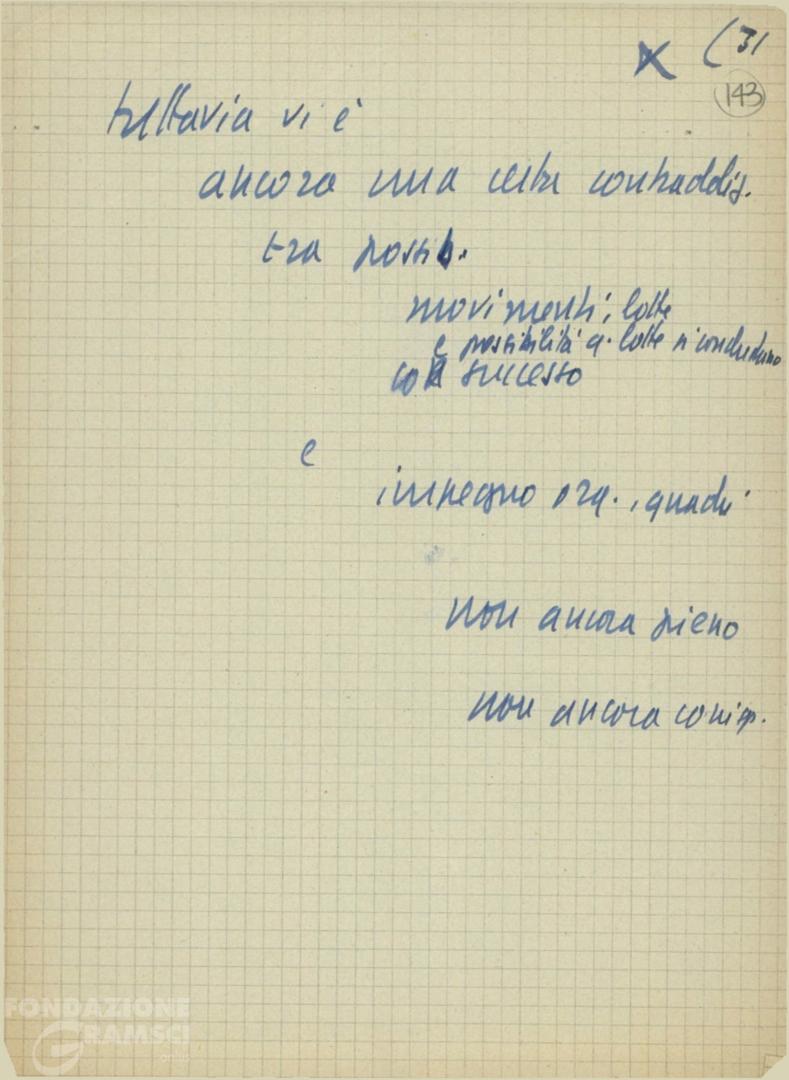 X (31
143
tuttavia vi è
ancora una certa contraddiz.
tra possib.
movimenti, lotte
e possibilità q. lotte si concludano
con successo
e
impegno org., quadri
non ancora pieno
non ancora corrisp.
FONDAZIONE
GRAMSCI